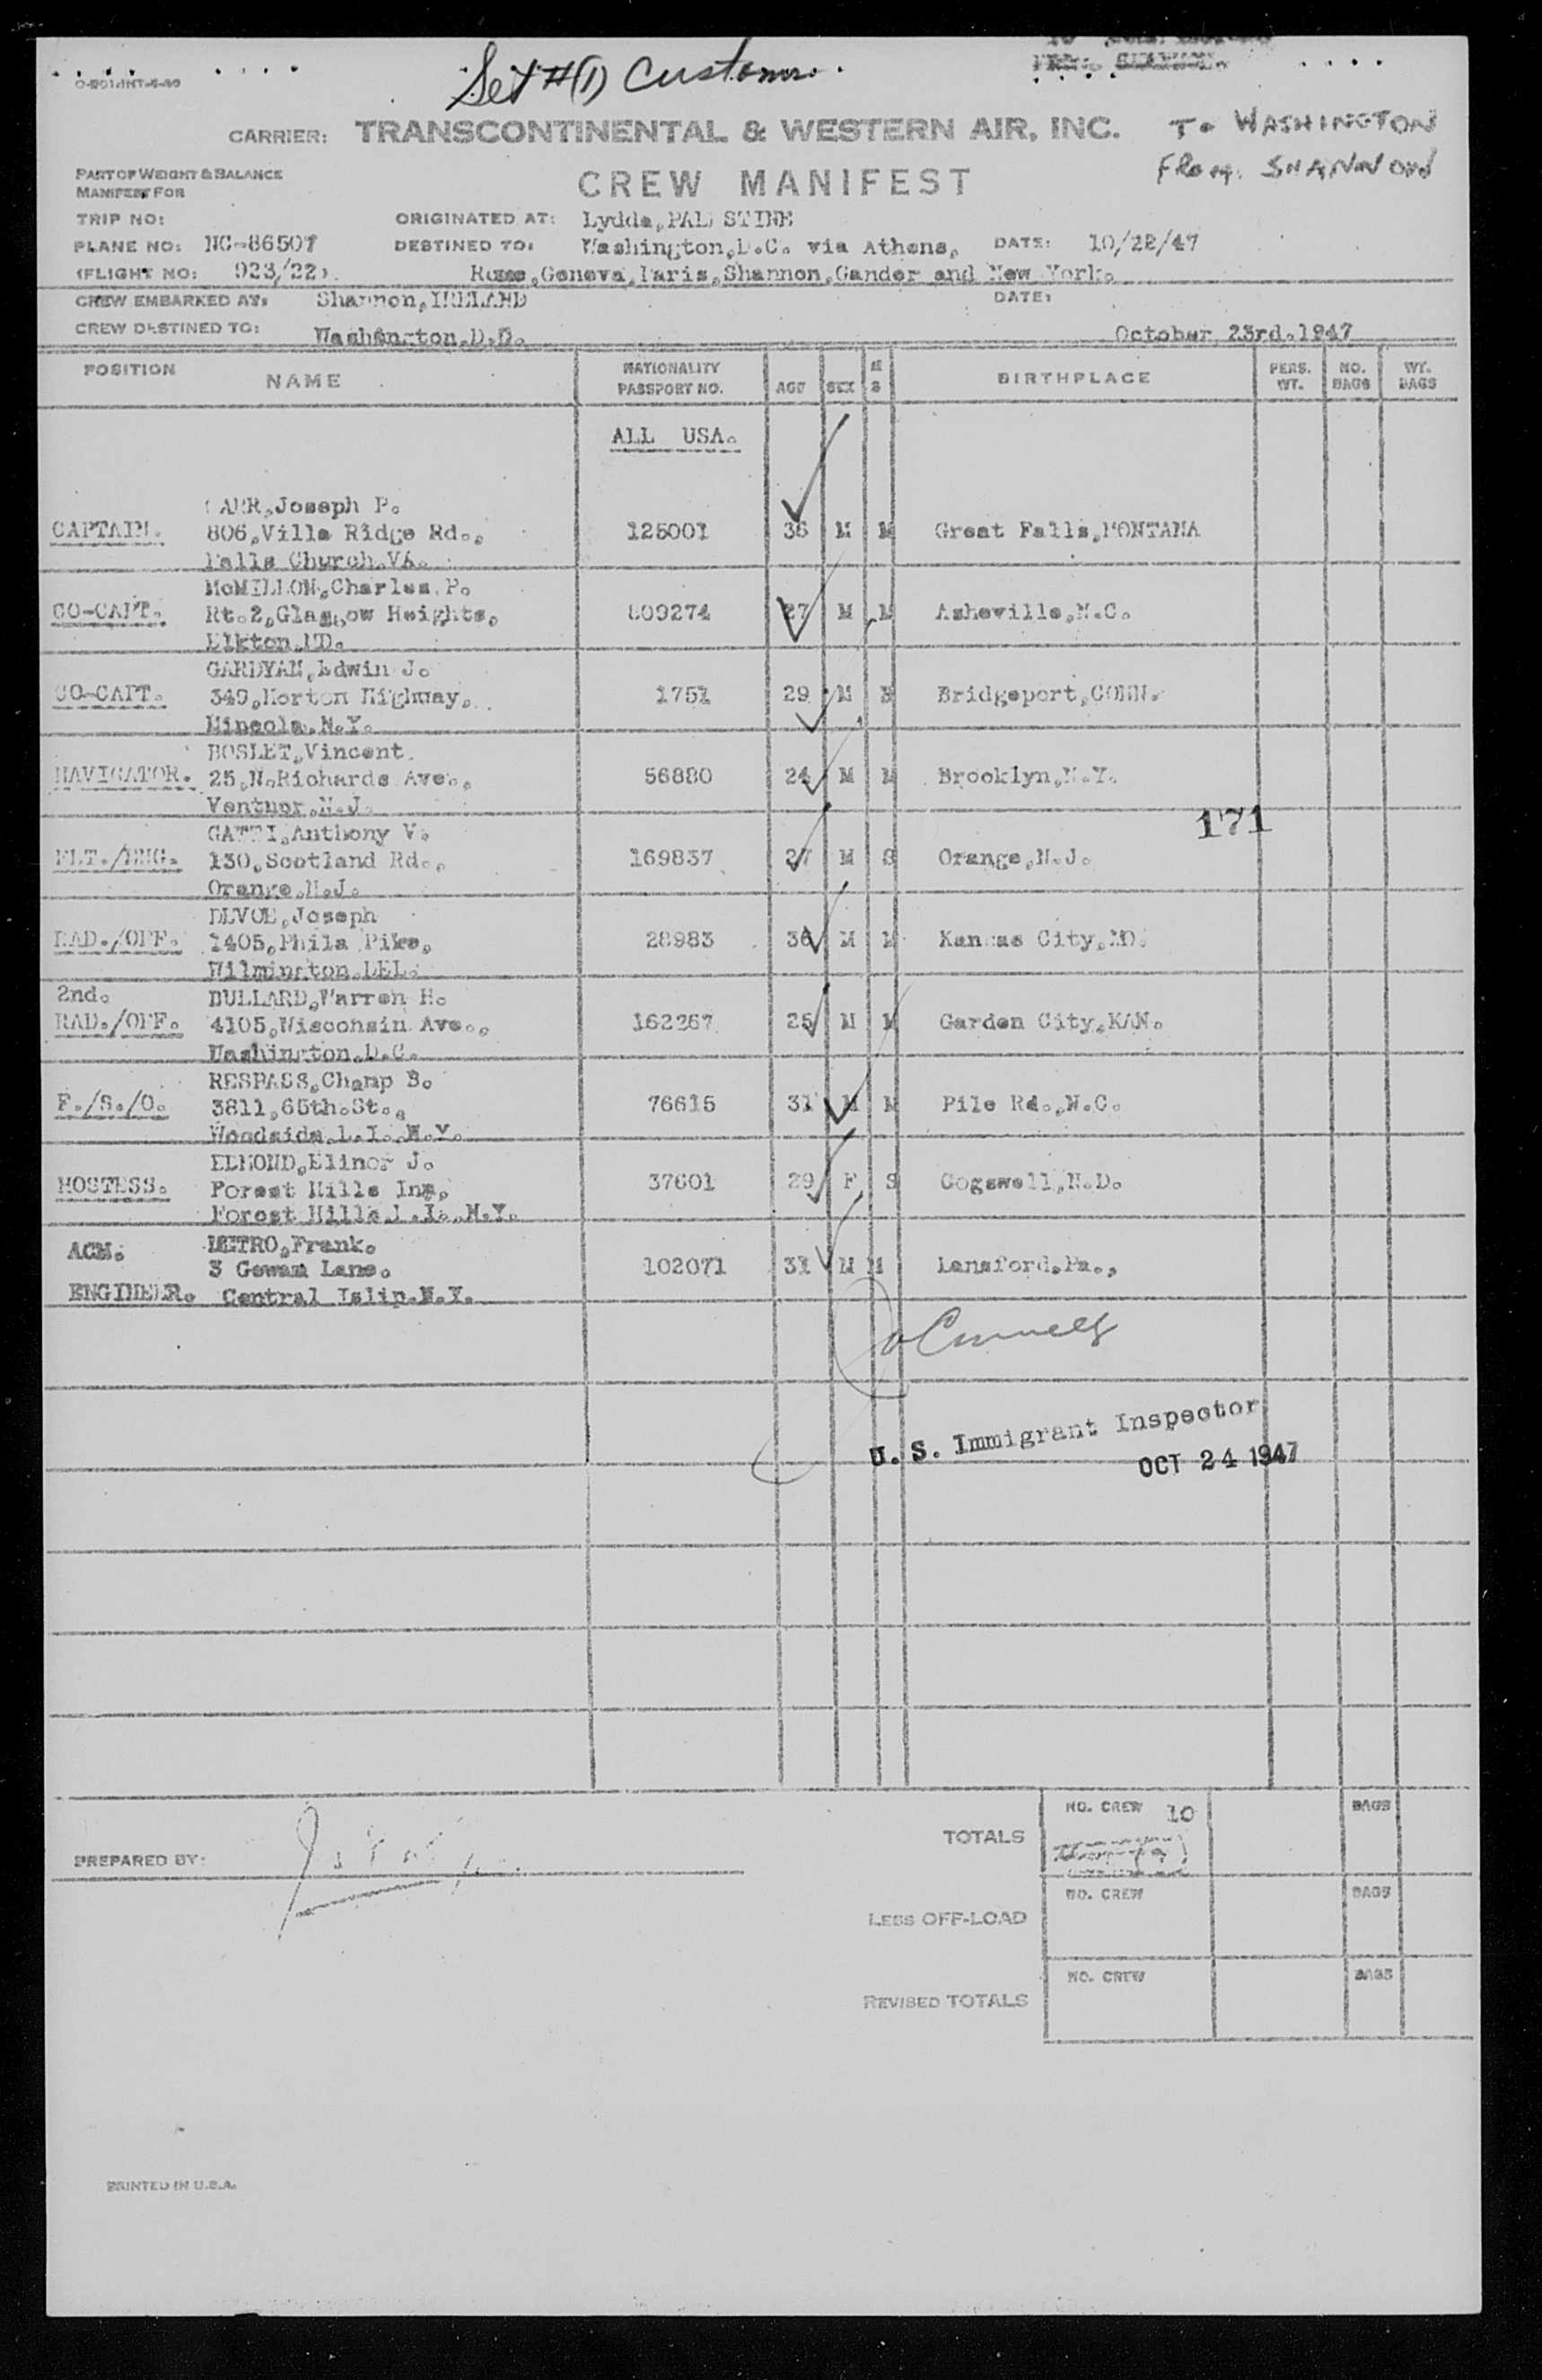 Set #(1) Customs.
CARRIER: TRANSCONTINENTAL & WESTERN AIR, INC.
To WASHINGTON
From. SHANNON
PART OF WEIGHT & BALANCE
MANIFEST FOR
CREW MANIFEST
TRIP NO:
ORIGINATED AT: Lydda, PAL STINE
PLANE NO: NC-86507
DESTINED TO: Washington, D.C. via Athens, DATE: 10/22/47
(FLIGHT NO: 923/22).
Rome, Geneva, Paris, Shannon, Gander and New York.
CREW EMBARKED AT: Shannon, IRELAND DATE:
CREW DESTINED TO: Washington, D.D. October 23rd. 1947
POSITION NAME NATIONALITY PASSPORT NO. AGE SEX M S BIRTHPLACE PERS. WT. NO. BAGS WT. BAGS
ALL USA.
CARR, Joseph P.
CAPTAIN. 806, Villa Ridge Rd., 125001 36 M M Great Falls, MONTANA
Falls Church, VA.
McMILLON, Charles. P.
CO-CAPT. Rt. 2, Glasgow Heights, 809274 27 M M Asheville, N.C.
Elkton, MD.
GARDYAN, Edwin J.
CO-CAPT. 349, Horton Highway, 1751 29 M M Bridgeport, CONN.
Mineola, N.Y.
BOSLET, Vincent.
NAVIGATOR. 25, N. Richards Ave., 56880 24 M M Brooklyn, N.Y.
Ventnor, N.J.
171
GATTI, Anthony V.
FLT./ENG. 130, Scotland Rd., 169837 27 M S Orange, N.J.
Orange, N.J.
DEVOE, Joseph
RAD./OFF. 1405, Phila Pike, 28983 36 M M Kansas City, MO.
Wilmington, DEL.
2nd. BULLARD, Warren H.
RAD./OFF. 4105, Wisconsin Ave., 162267 25 M M Garden City, KAN.
Washington, D.C.
RESPASS, Champ B.
F./S./O. 3811, 65th. St., 76615 31 M M Pile Rd., N.C.
Woodside, L.I., N.Y.
EDMOND, Elinor J.
HOSTESS. Forest Hills Inn, 37601 29 F S Cogswell, N.D.
Forest Hills, L.I., N.Y.
ACM. METRO, Frank.
3 Gowan Lane. 102071 31 M M Lansford, Pa.,
ENGINEER. Central Islip. N.Y.
U. S. Immigrant Inspector
OCT 24 1947
TOTALS NO. CREW 10 BAGS
PREPARED BY:
LESS OFF-LOAD NO. CREW BAGS
REVISED TOTALS NO. CREW BAGS
PRINTED IN U.S.A.